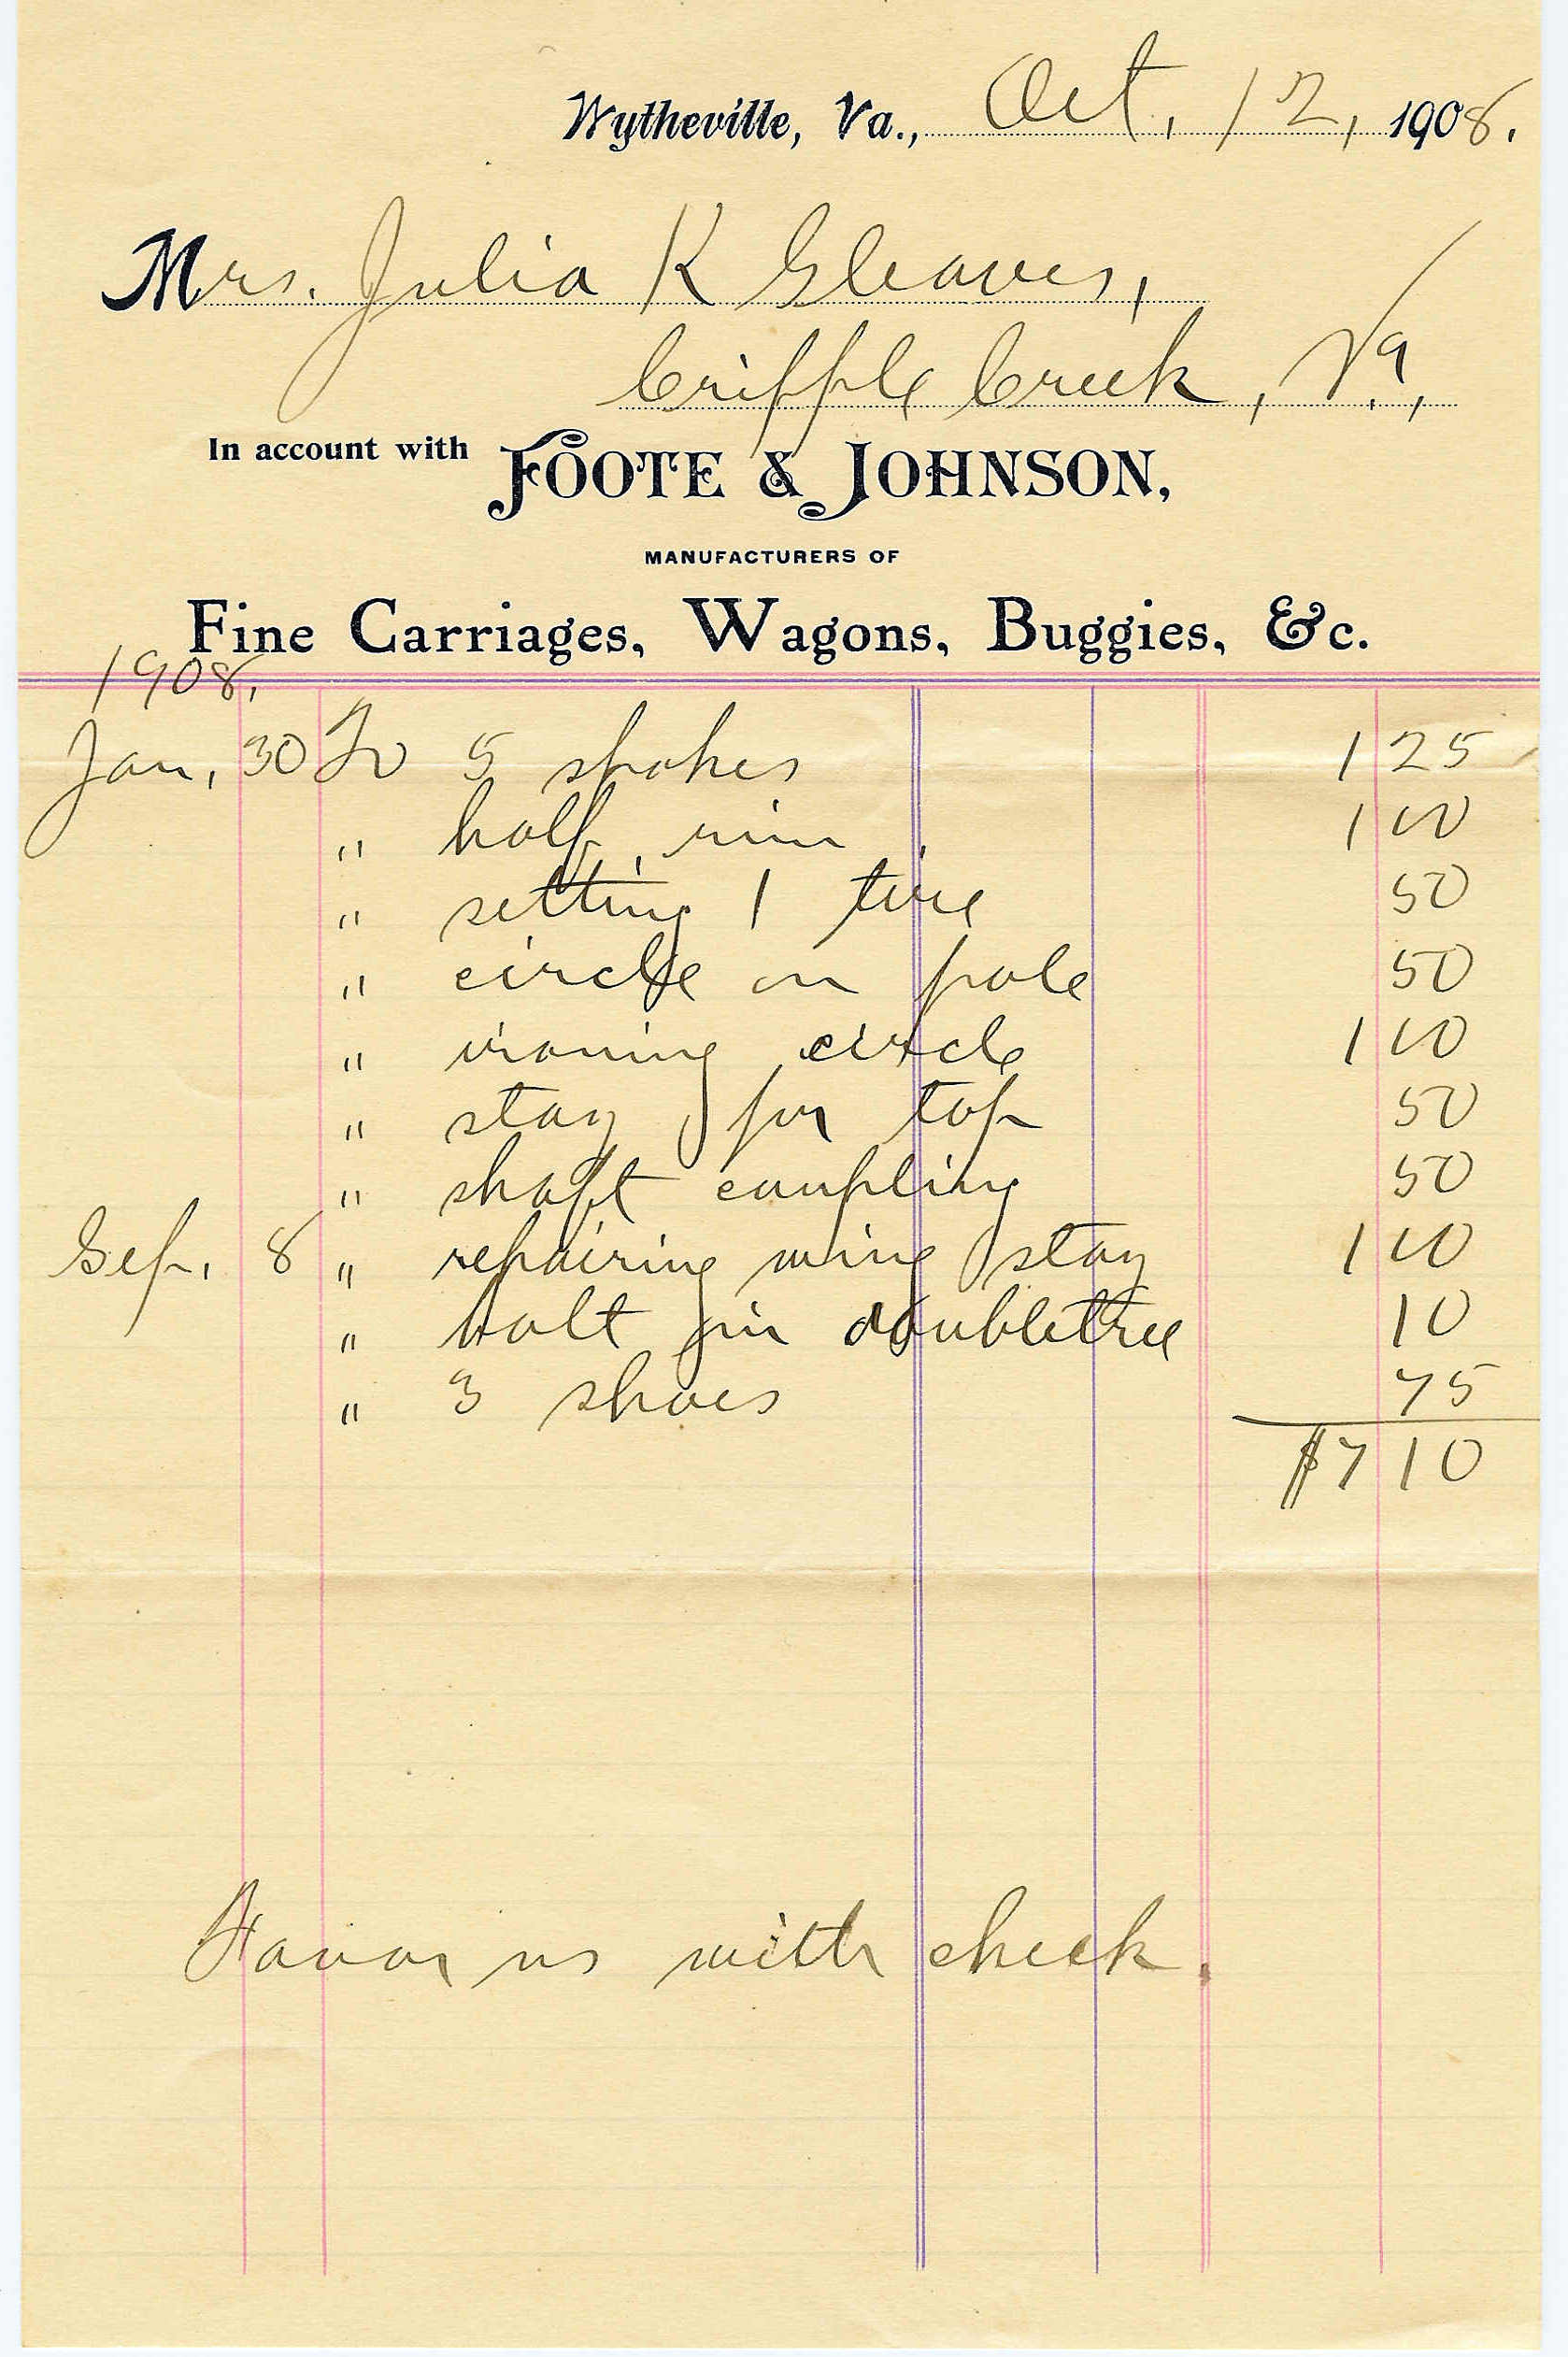 Wytheville, Va., Oct. 12, 1908.
Mrs. Julia K Gleaves,
Cripple Creek, Va.,
In account with FOOTE & JOHNSON,
MANUFACTURERS OF
Fine Carriages, Wagons, Buggies, &c.
1908.
Jan. 30 To 5 spokes 1 25
" half rim 1 00
" setting 1 tire 50
" circle on pole 50
" ironing circle 1 00
" stay for top 50
" shaft coupling 50
Sep. 8 " repairing wing stay 1 00
" bolt in doubletree 10
" 3 shoes 75
$7 10
Favor us with check.